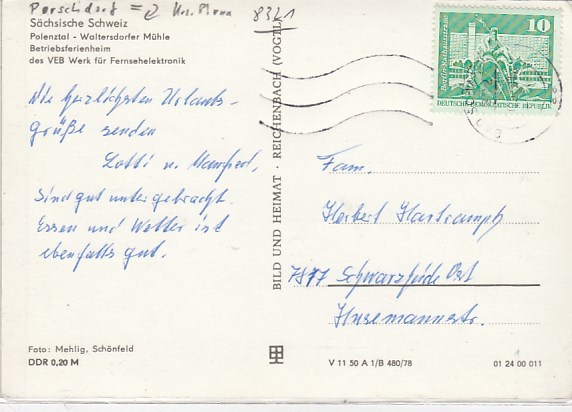 Porschdorf = Krs. Pirna 8321
Sächsische Schweiz
Polenztal - Waltersdorfer Mühle
Betriebsferienheim
des VEB Werk für Fernsehelektronik
Die herzlichsten Urlaubs-
grüße senden
Lotti u. Manfred.
Sind gut untergebracht.
Essen und Wetter ist
ebenfalls gut.
Foto: Mehlig, Schönfeld
DDR 0,20 M
BILD UND HEIMAT · REICHENBACH (VOGTL)
10
DEUTSCHE DEMOKRATISCHE REPUBLIK
Fam.
Herbert Hartramph
7817 Schwarzheide Ost
Husemannstr.
V 11 50 A 1/B 480/78
01 24 00 011